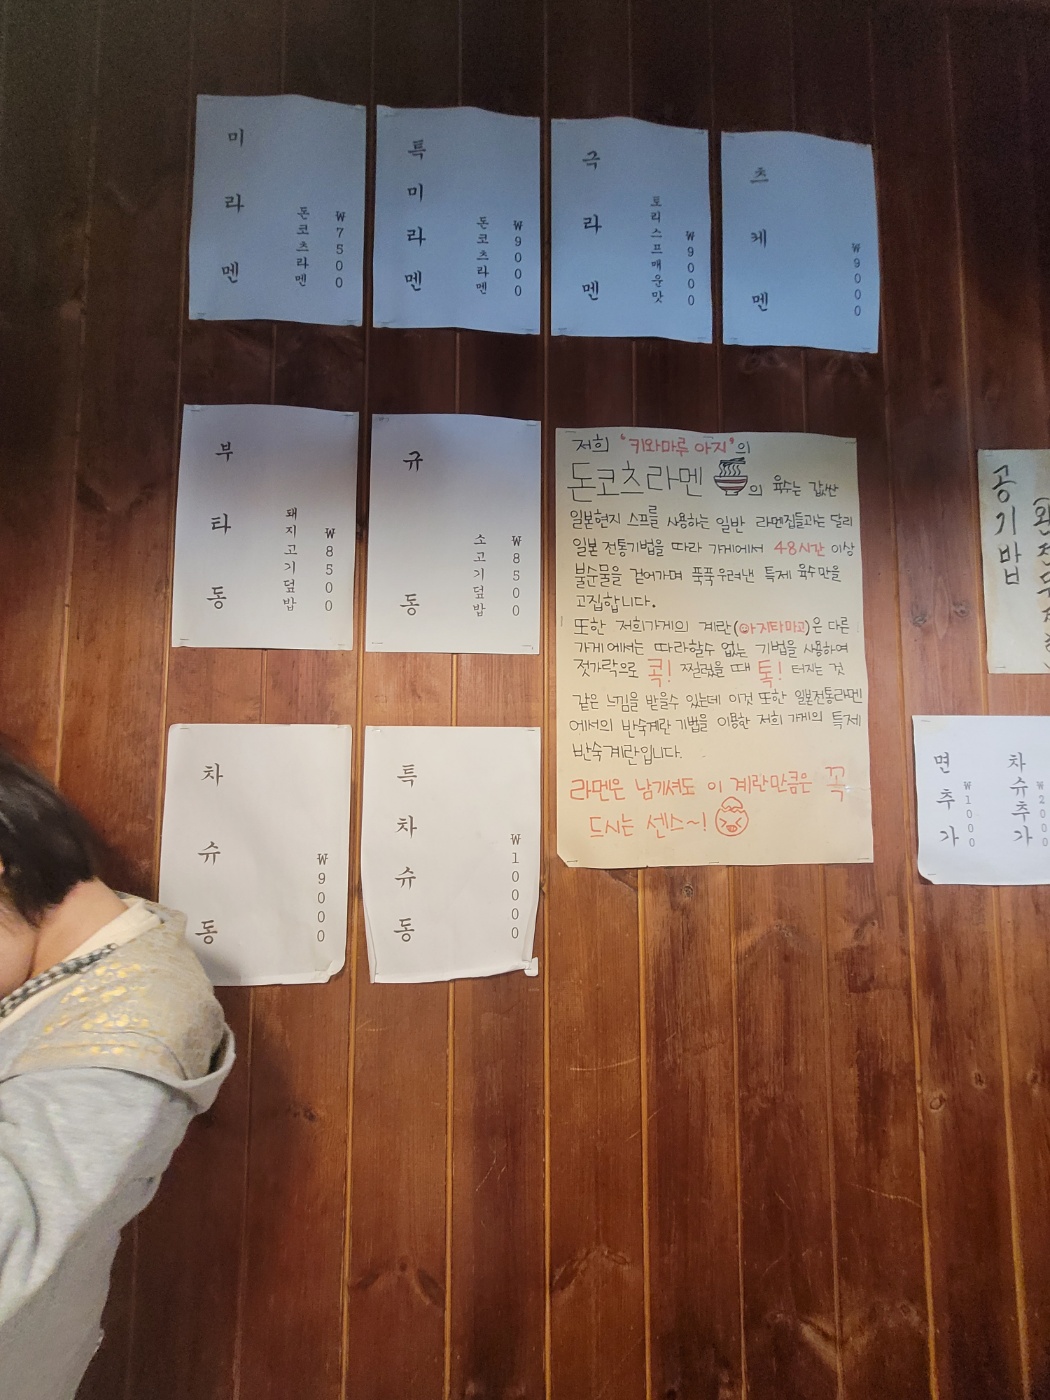 미라멘
돈코츠라멘
₩7500
특미라멘
돈코츠라멘
₩9000
극라멘
토리스프매운맛
₩9000
츠케멘
₩9000
부타동
돼지고기덮밥
₩8500
규동
소고기덮밥
₩8500
저희 "키와마루 아지"의
돈코츠라멘 의 육수는 값싼
일본현지 스프를 사용하는 일반 라멘집들과는 달리
일본 전통기법을 따라 가게에서 48시간 이상
불순물을 걷어가며 푹푹 우려낸 특제 육수만을
고집합니다.
또한 저희가게의 계란(아지타마고)은 다른
가게에서는 따라할수 없는 기법을 사용하여
젓가락으로 콕! 찔렀을 때 톡! 터지는 것
같은 느낌을 받을수 있는데 이것 또한 일본전통라멘
에서의 반숙계란 기법을 이용한 저희 가게의 특제
반숙계란입니다.
라멘은 남기셔도 이 계란만큼은 꼭
드시는 센스~!
공기밥
차슈동
₩9000
특차슈동
₩10000
면추가
₩1000
차슈추가
₩2000